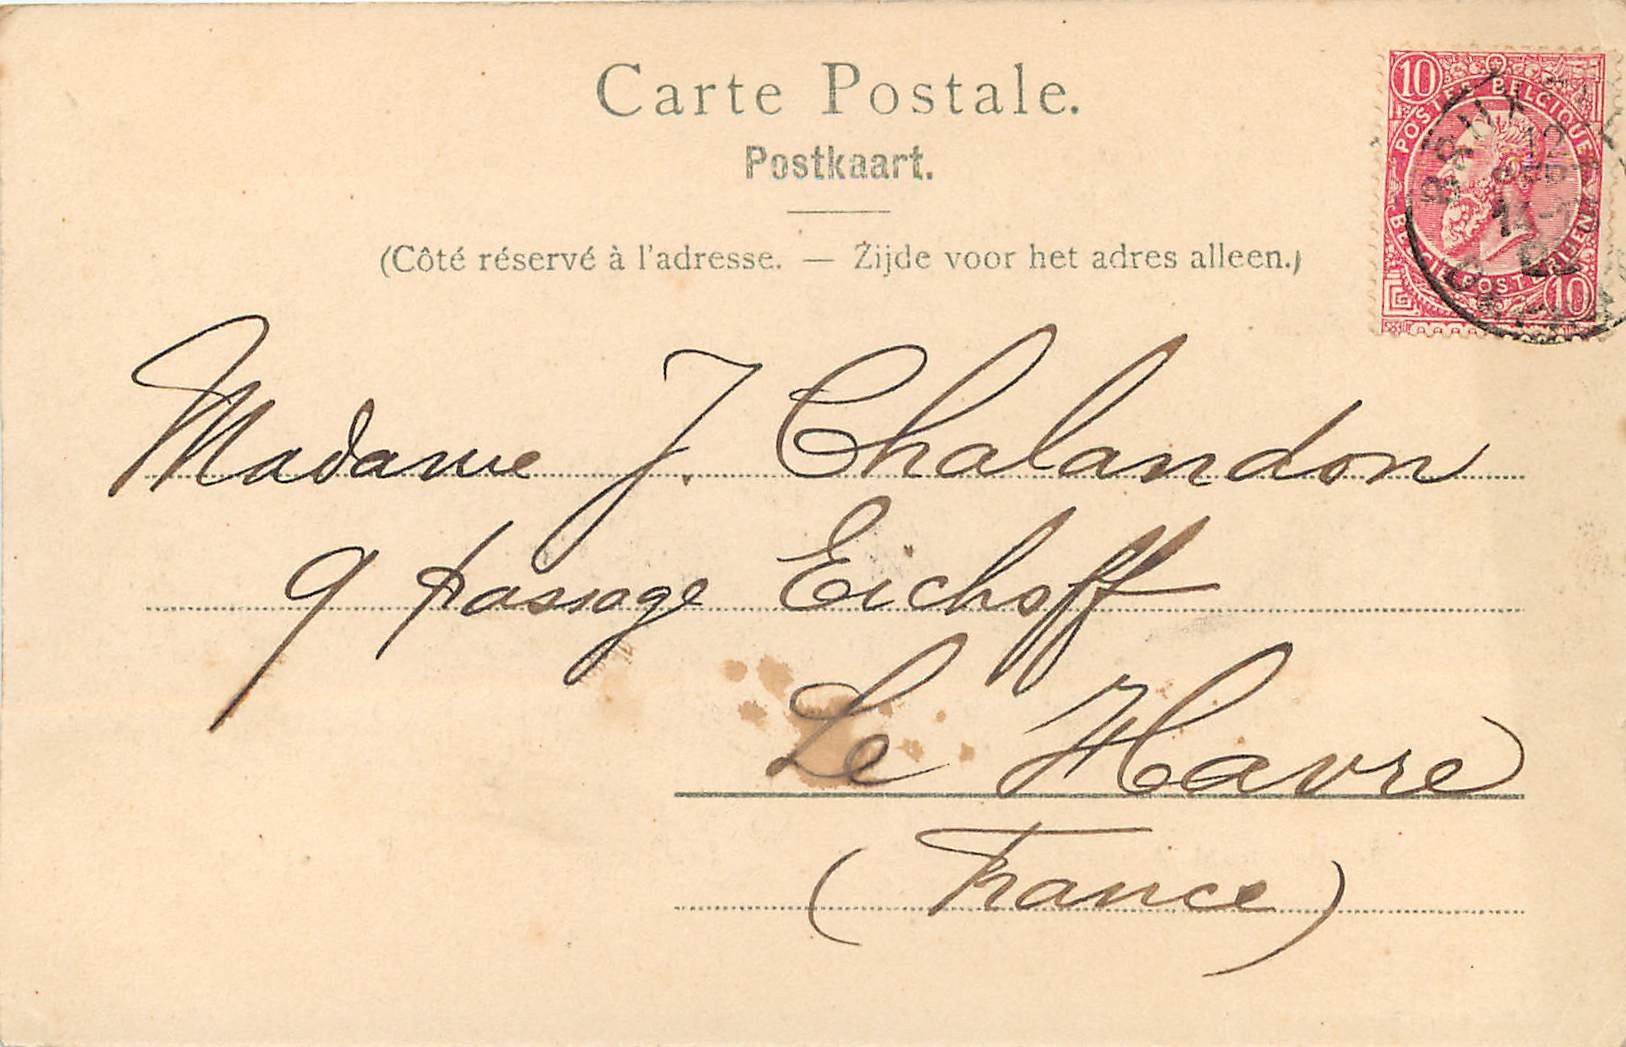 Carte Postale.
Postkaart.
(Côté réservé à l'adresse. — Zijde voor het adres alleen.)
10
POSTES BELGIQUE
BELGIË POSTERIJEN
10
BRUX
12
SEPT
Madame J. Chalandon
9 passage Eichoff
Le Havre
(France)